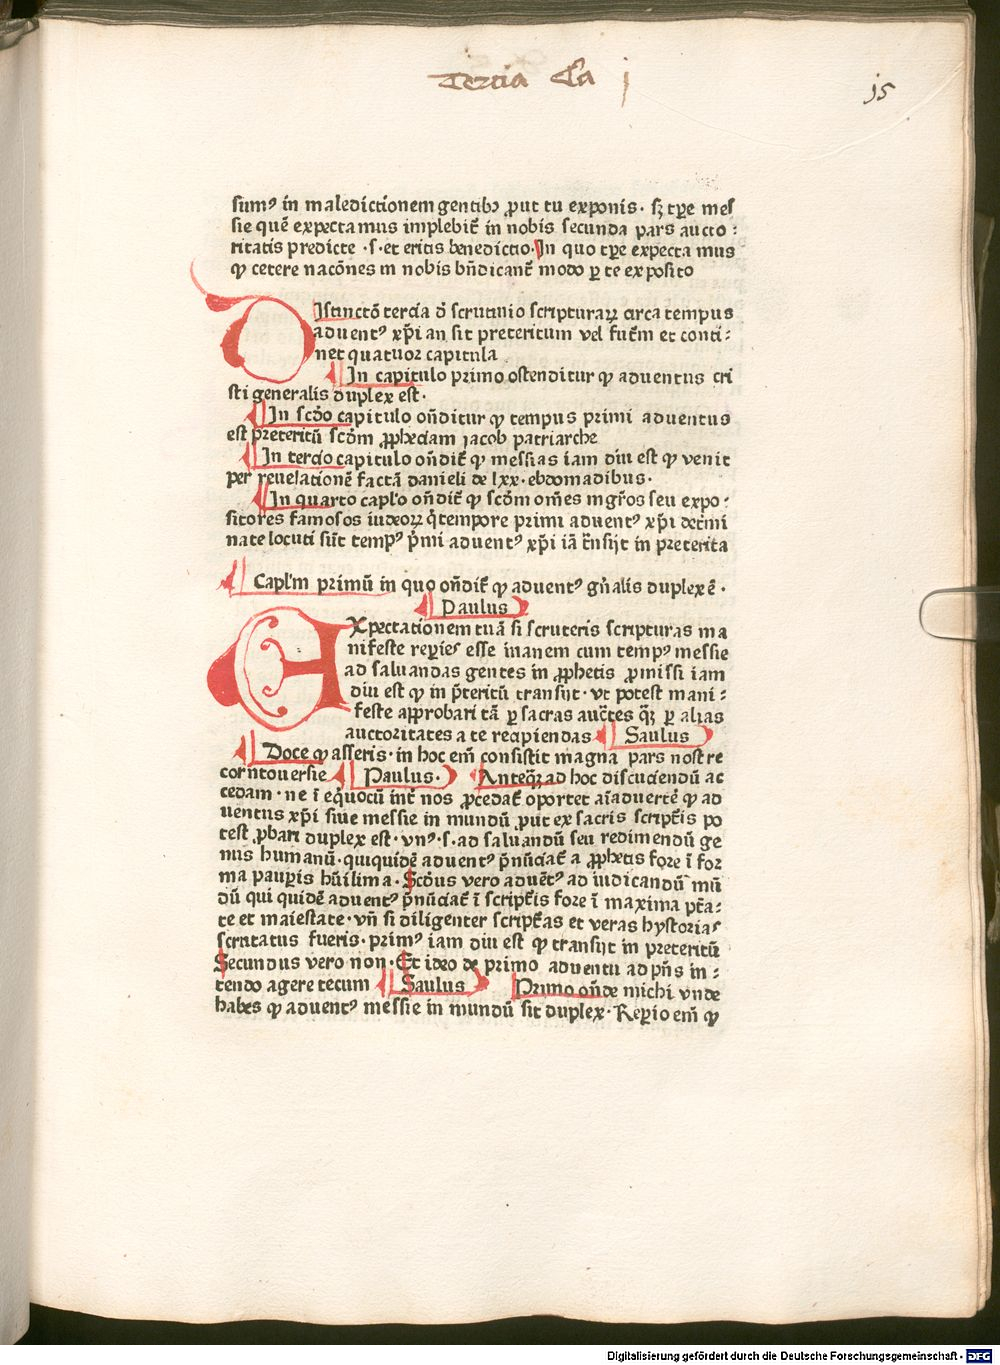 Tercia Ca j
js
sumꝰ in maledictionem gentibꝫ ꝓut tu exponis· sꝫ tꝑe mes
sie quē expectamus implebit̄ in nobis secunda pars aucto⸗
ritatis predicte ·s·et eritis benedictio·In quo tꝑe expectamus
ꝙ cetere nacōnes in nobis bn̄dicant̄ modo ꝑ te exposito
Distinctō tercia d̄ scrutinio scripturaꝝ circa tempus
aduentꝰ xp̄i an sit preteritum vel fut̄m et conti⸗
net quatuor capitula
In capitulo primo ostenditur ꝙ aduentus cri
sti generalis duplex est·
In scd̄o capitulo on̄ditur ꝙ tempus primi aduentus
est preteritū scd̄m ꝓphetiam jacob patriarche
In tercio capitulo on̄dit̄ ꝙ messias iam diu est ꝙ venit
per reuelationē factā danieli de lxx·ebdomadibus·
In quarto capl'o on̄dit̄ ꝙ scd̄m om̄es mgr̄os seu expo⸗
sitores famosos iudeoꝝ q̄ tempore primi aduentꝰ xp̄i det̄mi
nate locuti sūt tempꝰ p̄mi aduentꝰ xp̄i iā t̄nsijt in preterita
Capl'm primū in quo on̄dit̄ ꝙ aduentꝰ gn̄alis duplex ē·
Paulus
EXpectationem tuā si scruteris scripturas ma
nifeste reꝑies esse inanem cum tempꝰ messie
ad saluandas gentes in ꝓphetis ꝓmissi iam
diu est ꝙ in p̄teritū transijt·vt potest mani⸗
feste approbari tā ꝑ sacras auct̄es q̄ꝫ ꝑ alias
auctoritates a te recipiendas Saulus
Doce ꝙ asseris·in hoc em̄ consistit magna pars nostre
corntouersie Paulus· Anteq̄ꝫ ad hoc discuciendū ac
cedam·ne ī eq̄uocū int̄ nos ꝓcedat̄ oportet aīaduertē ꝙ ad
uentus xp̄i siue messie in mundū ꝓut ex sacris script̄is po
test ꝓbari duplex est·vnꝰ·s·ad saluandū seu redimendū ge
nus humanū·quiquidē aduentꝰ p̄nūciat̄ a ꝓphetis fore ī for
ma pauꝑis hūilima·Scd̄us vero aduētꝰ ad iudicandū mū
dū qui quidē aduentꝰ p̄nūciat̄ ī script̄is fore ī maxima pt̄a⸗
te et maiestate·vn̄ si diligenter script̄as et veras hystorias
scrutatus fueris·primꝰ iam diu est ꝙ transijt in preteritū
Secundus vero non·Et ideo de primo aduentu ad pn̄s in⸗
tendo agere tecum Saulus Primo on̄de michi vnde
habes ꝙ aduentꝰ messie in mundū sit duplex·Reꝑio em̄ ꝙ
Digitalisierung gefördert durch die Deutsche Forschungsgemeinschaft - DFG